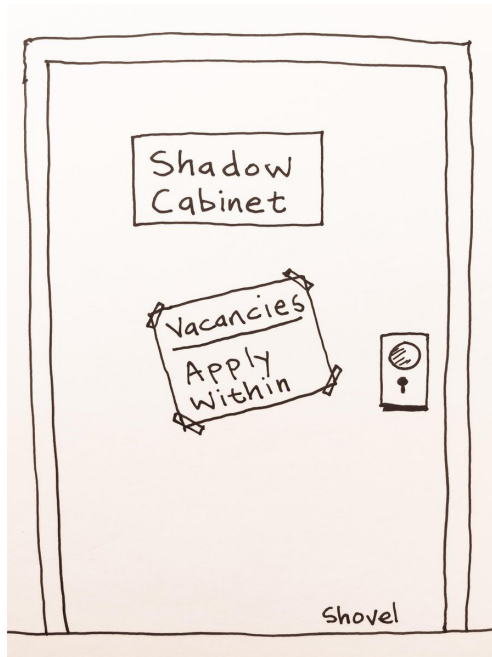 Shadow
Cabinet
Vacancies
Apply
Within
Shovel